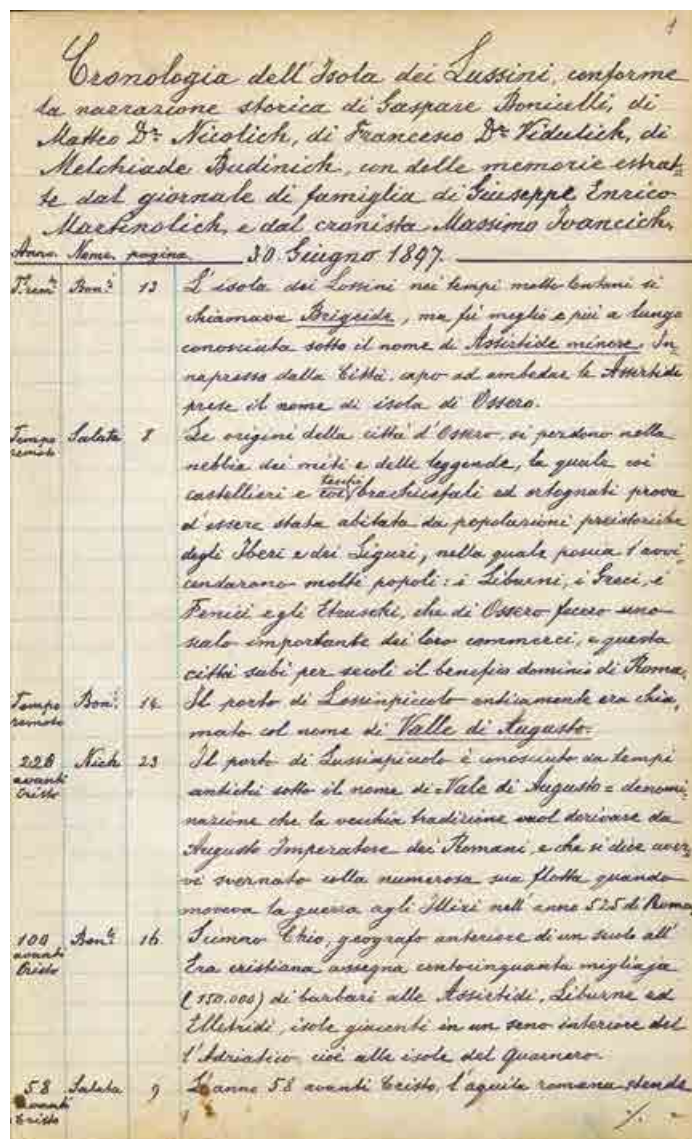 1
Cronologia dell'Isola dei Lussini, conforme
la narrazione storica di Gaspare Bonicelli, di
Matteo Dr. Nicolich, di Francesco Dr. Vidulich, di
Melchiade Budinich, con delle memorie estrat-
te dal giornale di famiglia di Giuseppe Enrico
Martinolich, e dal cronista Massimo Ivancich.
Anno Nome pagina 30 Giugno 1897.
Bon.i 13 L'isola dei Lussini nei tempi molto lontani si
chiamava Brigeide, ma fu meglio e più a lungo
conosciuta sotto il nome di Assirtide minore. In
appresso dalla Città capo ad ambedue le Assirtidi
prese il nome di isola di Ossero.
Tempo remoto Salata 8 Le origini della città d'Ossero si perdono nella
nebbia dei miti e delle leggende, la quale coi
castellieri e tempi brachicefali ed ortognati prova
d'essere stata abitata da popolazioni preistoriche
degli Iberi e dei Liguri, nella quale poscia s'avvi-
cendarono molti popoli: i Liburni, i Greci, i
Fenici e gli Etruschi, che di Ossero fecero uno
scalo importante dei loro commerci, e questa
città subì per secoli il benefico dominio di Roma.
Tempo remoto Bon.i 14 Il porto di Lussinpiccolo anticamente era chia-
mato col nome di Valle di Augusto.
228 avanti Cristo Nich 23 Il porto di Lussinpiccolo è conosciuto da tempi
antichi sotto il nome di = Vale di Augusto = denomi-
nazione che la vecchia tradizione vuol derivare da
Augusto Imperatore dei Romani, e che si dice aver-
vi svernato colla numerosa sua flotta quando
moveva la guerra agli Illiri nell'anno 525 di Roma
100 avanti Cristo Bon.i 16 Summo Chio, geografo anteriore di un secolo all'
Era cristiana assegna centocinquanta migliaja
(150.000) di barbari alle Assirtidi, Liburne ed
Elletridi, isole giacenti in un seno interiore del
l'Adriatico cioè alle isole del Quarnero.
58 avanti Cristo Salata 9 L'anno 58 avanti Cristo, l'aquila romana stende
./.